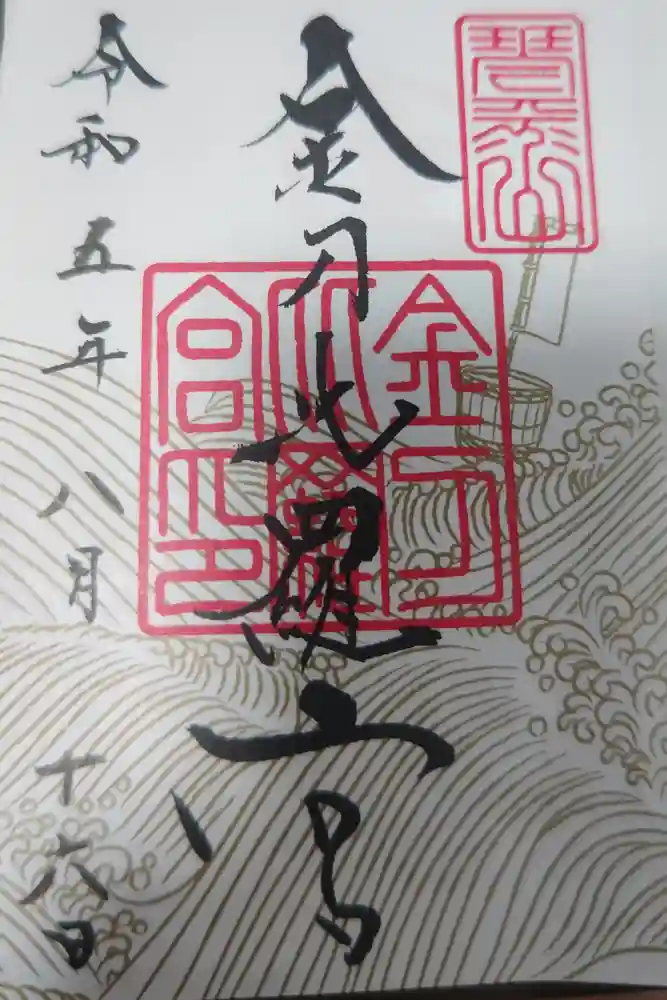 琴平山
金刀比羅宮
金刀
比羅
宮印
令和五年八月十六日